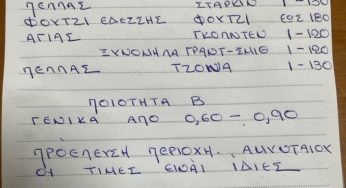 ΠΕΛΛΑΣ ΣΤΑΡΚΙΝ 1-130
ΦΟΥΤΖΙ ΕΔΕΣΣΗΣ ΦΟΥΤΖΙ ΕΩΣ 180
ΑΓΙΑΣ ΓΚΟΛΝΤΕΝ 1-120
ΞΥΝΟΜΗΛΑ ΓΡΑΝΤ-ΣΜΙΘ 1-120
ΠΕΛΛΑΣ ΤΖΟΝΑ 1-130
ΠΟΙΟΤΗΤΑ Β
ΓΕΝΙΚΑ ΑΠΟ 0,60-0,90
ΠΡΟΕΛΕΥΣΗ ΠΕΡΙΟΧΗ. ΑΜΥΝΤΑΙΟΥ
ΟΙ ΤΙΜΕΣ ΕΙΝΑΙ ΙΔΙΕΣ